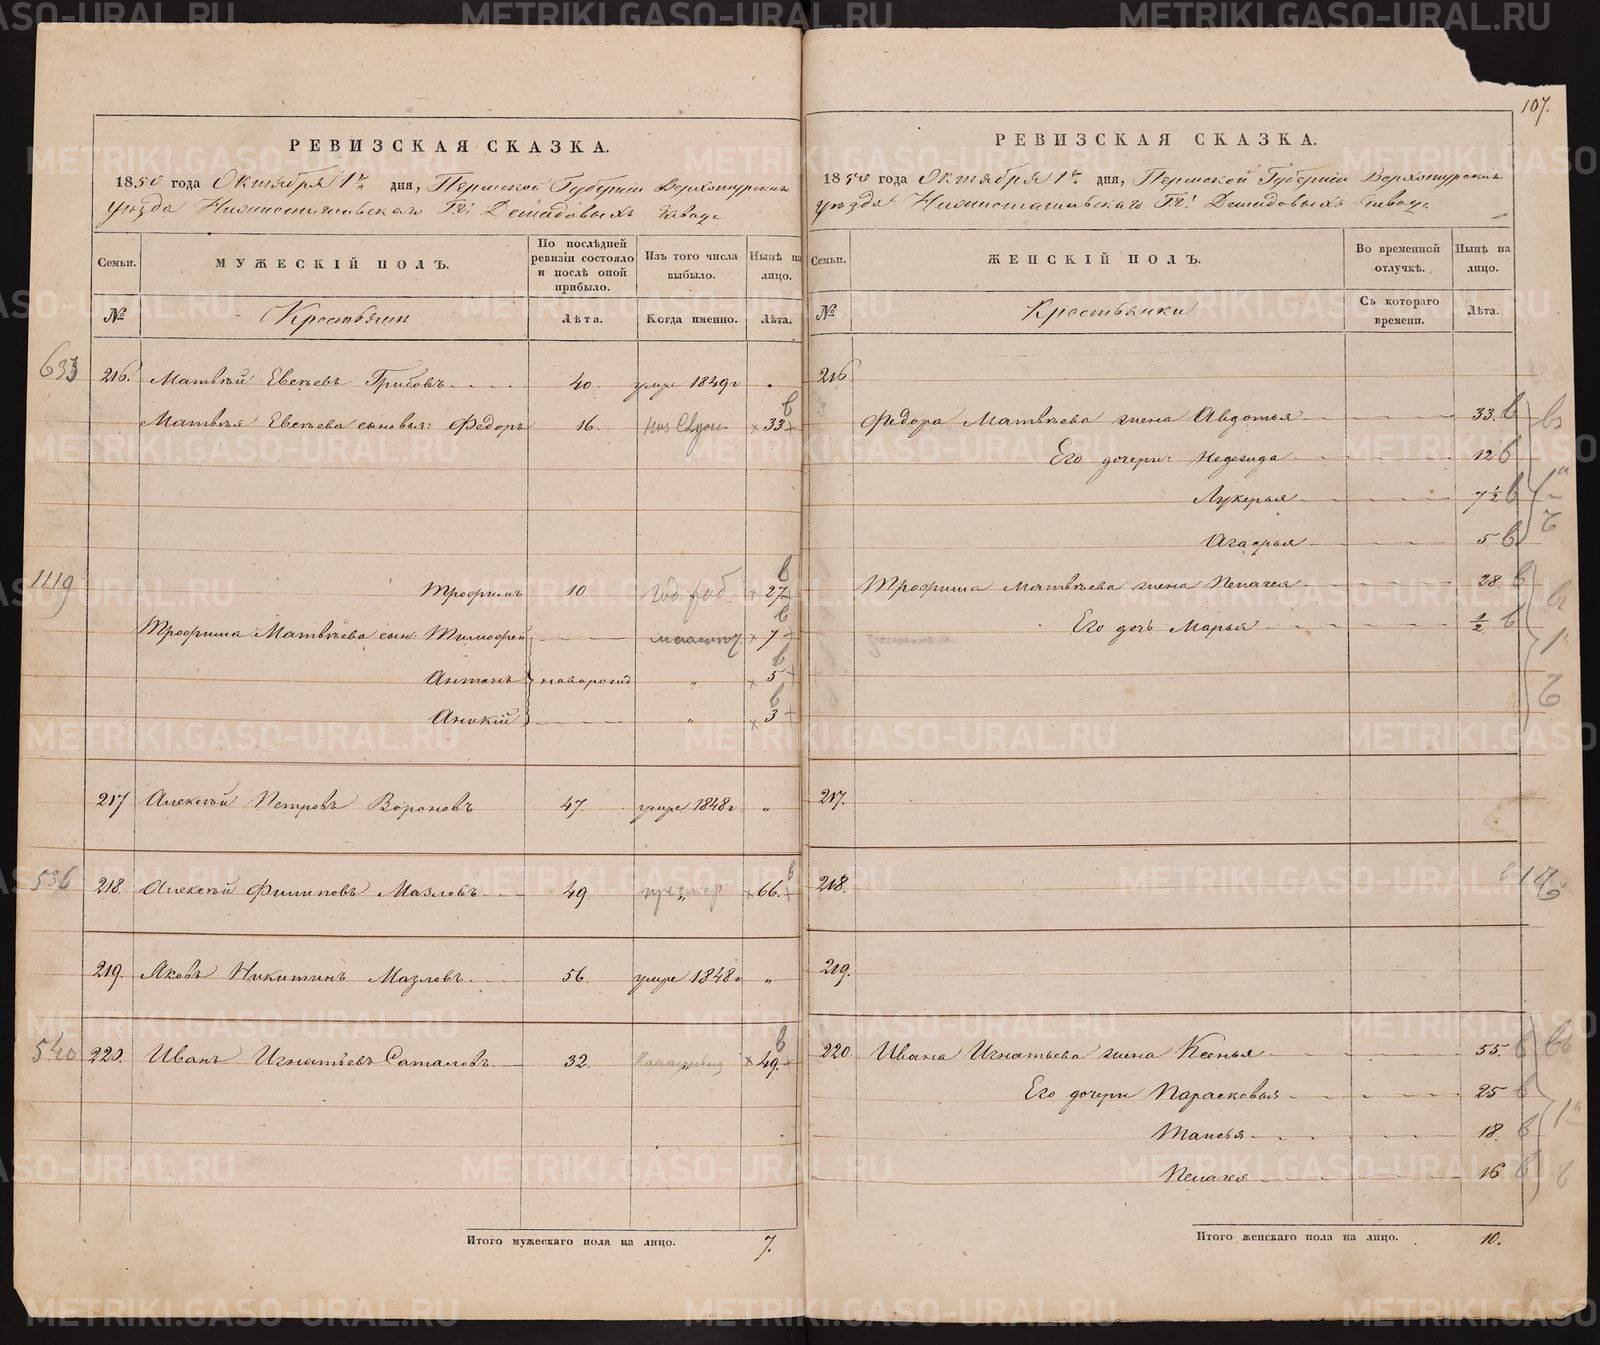 107.
РЕВИЗСКАЯ СКАЗКА.
1850 года Октября 1го дня, Пермской Губерніи Верхотурскаго
уѣзда Нижнетагильскаго Гг: Демидовыхъ завода
Семьи.
МУЖЕСКІЙ ПОЛЪ.
По послѣдней ревизіи состояло и послѣ оной прибыло.
Изъ того числа выбыло.
Нынѣ на лицо.
№
Крестьяне
Лѣта.
Когда именно.
Лѣта.
633 216. Матвѣй Евсѣевъ Грибовъ 40. умре 1849г „
Матвѣя Евсѣева сыновья: Федоръ 16. 33 в
1119 Трофимъ 10. 27 в
Трофима Матвѣева сын: Тимофей 7 в
Антонъ новорожд „ 5 в
Аникій „ 3 в
217 Алексѣй Петровъ Вороновъ 47. умре 1848г. „
536 218. Алексѣй Филиповъ Мазловъ 49. 66. в
219. Яковъ Никитинъ Мазловъ 56. умре 1848г „
540 220. Иванъ Игнатьевъ Саталовъ 32. 49. в
Итого мужескаго пола на лицо. 7.
РЕВИЗСКАЯ СКАЗКА.
1850 года Октября 1го дня, Пермской Губерніи Верхотурскаго
уѣзда Нижнетагильскаго Гг: Демидовыхъ завода
Семьи.
ЖЕНСКІЙ ПОЛЪ.
Во временной отлучкѣ.
Нынѣ на лицо.
№
Крестьянки
Съ котораго времени.
Лѣта.
216.
Федора Матвѣева жена Авдотья 33. в
Его дочери: Надежида 12 в
Лукерья 7 1/2 в
Агафья 5 в
Трофима Матвѣева жена Пелагея 28. в
Его дочь Марья 1/2 в
217.
218.
219.
220 Ивана Игнатьева жена Ксенья 55. в
Его дочери Парасковья 25 в
Таисья 18. в
Пелагея 16 в
Итого женскаго пола на лицо. 10.
METRIKI.GASO-URAL.RU